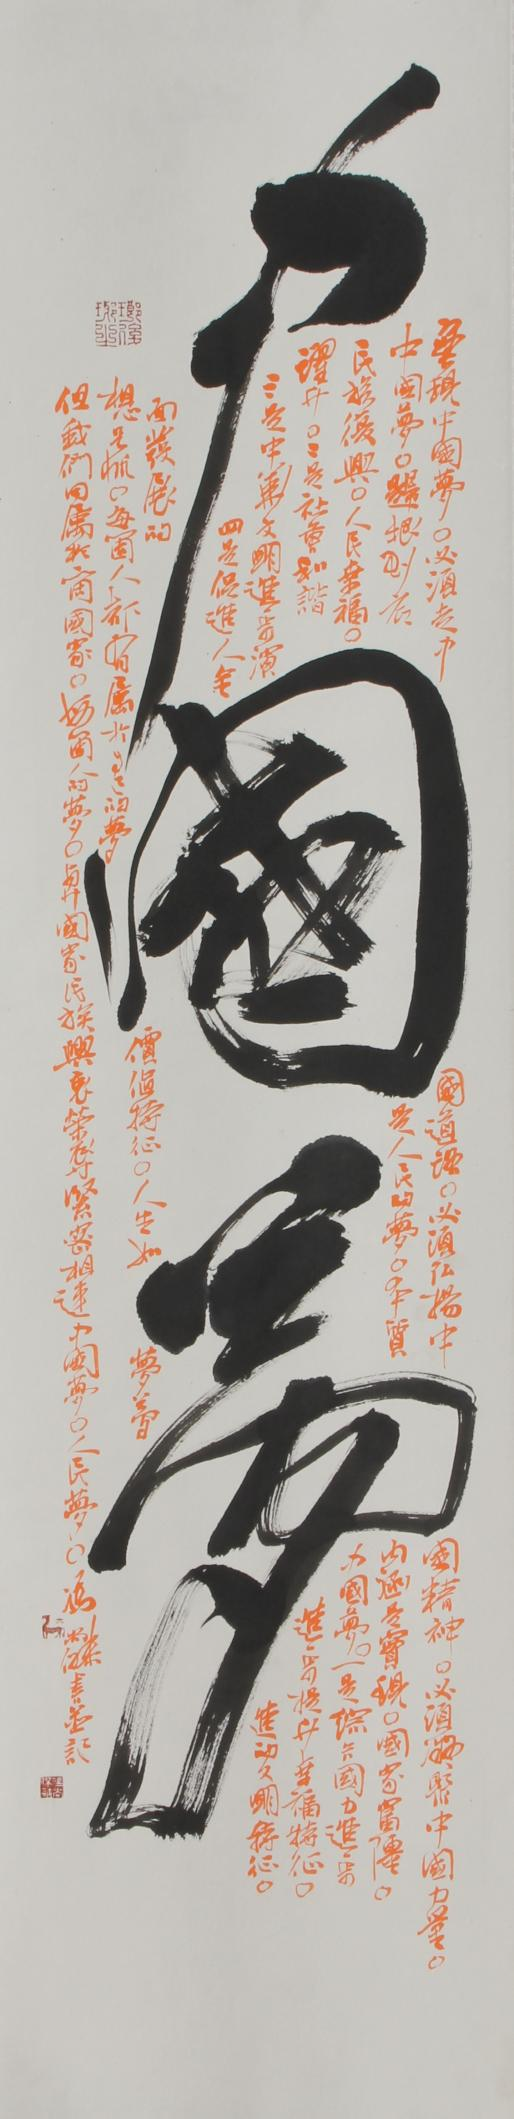 中國夢
實現中國夢。必須走中
國道路。必須弘揚中
國精神。必須凝聚中國力量。
中國夢。歸根到底
是人民的夢。本質
内涵是實現。國家富强。
民族復興。人民幸福。
中國夢。一是综合國力進步
躍升。二是社會和諧
進步提升幸福特征。
三是中華文明進步演
進動文明特征。
四是促進人全
面發展的
價值特征。人生如
夢
想是帆。每個人都有屬於自己的夢
但我們同屬於一個國家。每個人的夢。與國家民族興衰榮辱緊密相連中國夢。人民夢。馮
書並記